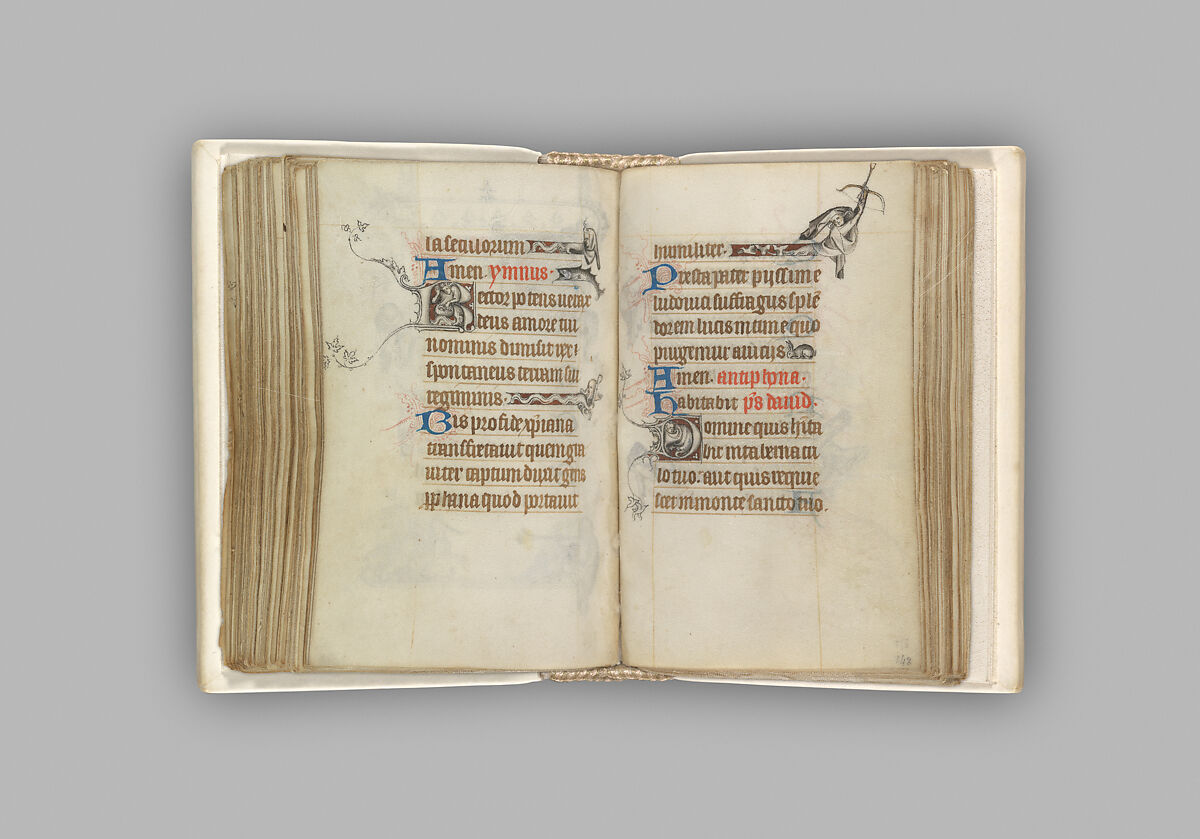 la seculorum
Amen. ymnus.
Rector potens uerax
deus amore tui
nominis dimisit rex
spontaneus terram sui
regiminis.
Bis pro fide xpiana
transfretauit quem gra
uiter captum dixit gens
prphana quod portauit
humiliter.
Presta pater pijssime
ludouici suffragijs splē
dorem lucis intime quo
Amen. antiphona.
Habitabit ps dauid.
Domine quis hita
bit in tabernacu
lo tuo: aut quis requie
scet in monte sancto tuo.
148